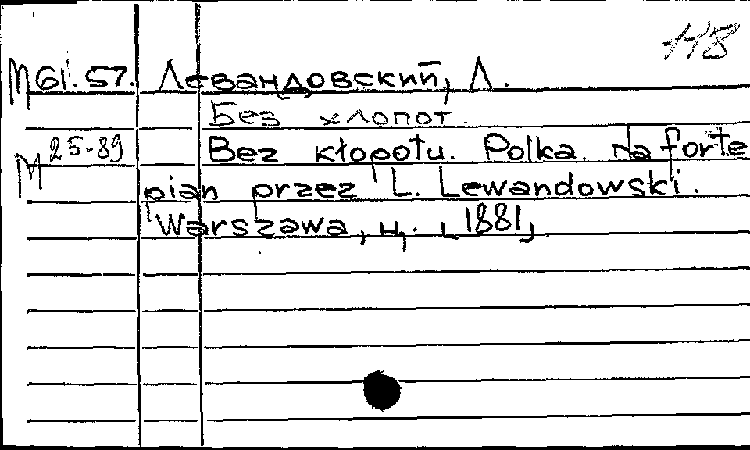 118
М 61.57. Левандовский, Л.
Без хлопот.
М 25-89 Bez kłopotu. Polka na forte
pian przez L. Lewandowski.
Warszawa, ц. [1881]